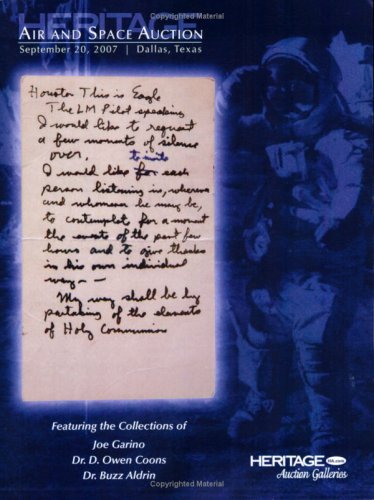 HERITAGE
AIR AND SPACE AUCTION
September 20, 2007 | Dallas, Texas
Houston This is Eagle
The LM Pilot speaking
I would like to request
a few moments of silence
over. to invite
I would like for each
person listening in, wherever
and whomever he may be,
to contemplate for a moment
the events of the past few
hours and to give thanks
in his own individual
way —
My way shall be by
partaking of the elements
of Holy Communion
Featuring the Collections of
Joe Garino
Dr. D. Owen Coons
Dr. Buzz Aldrin
HERITAGE HA.com
Auction Galleries